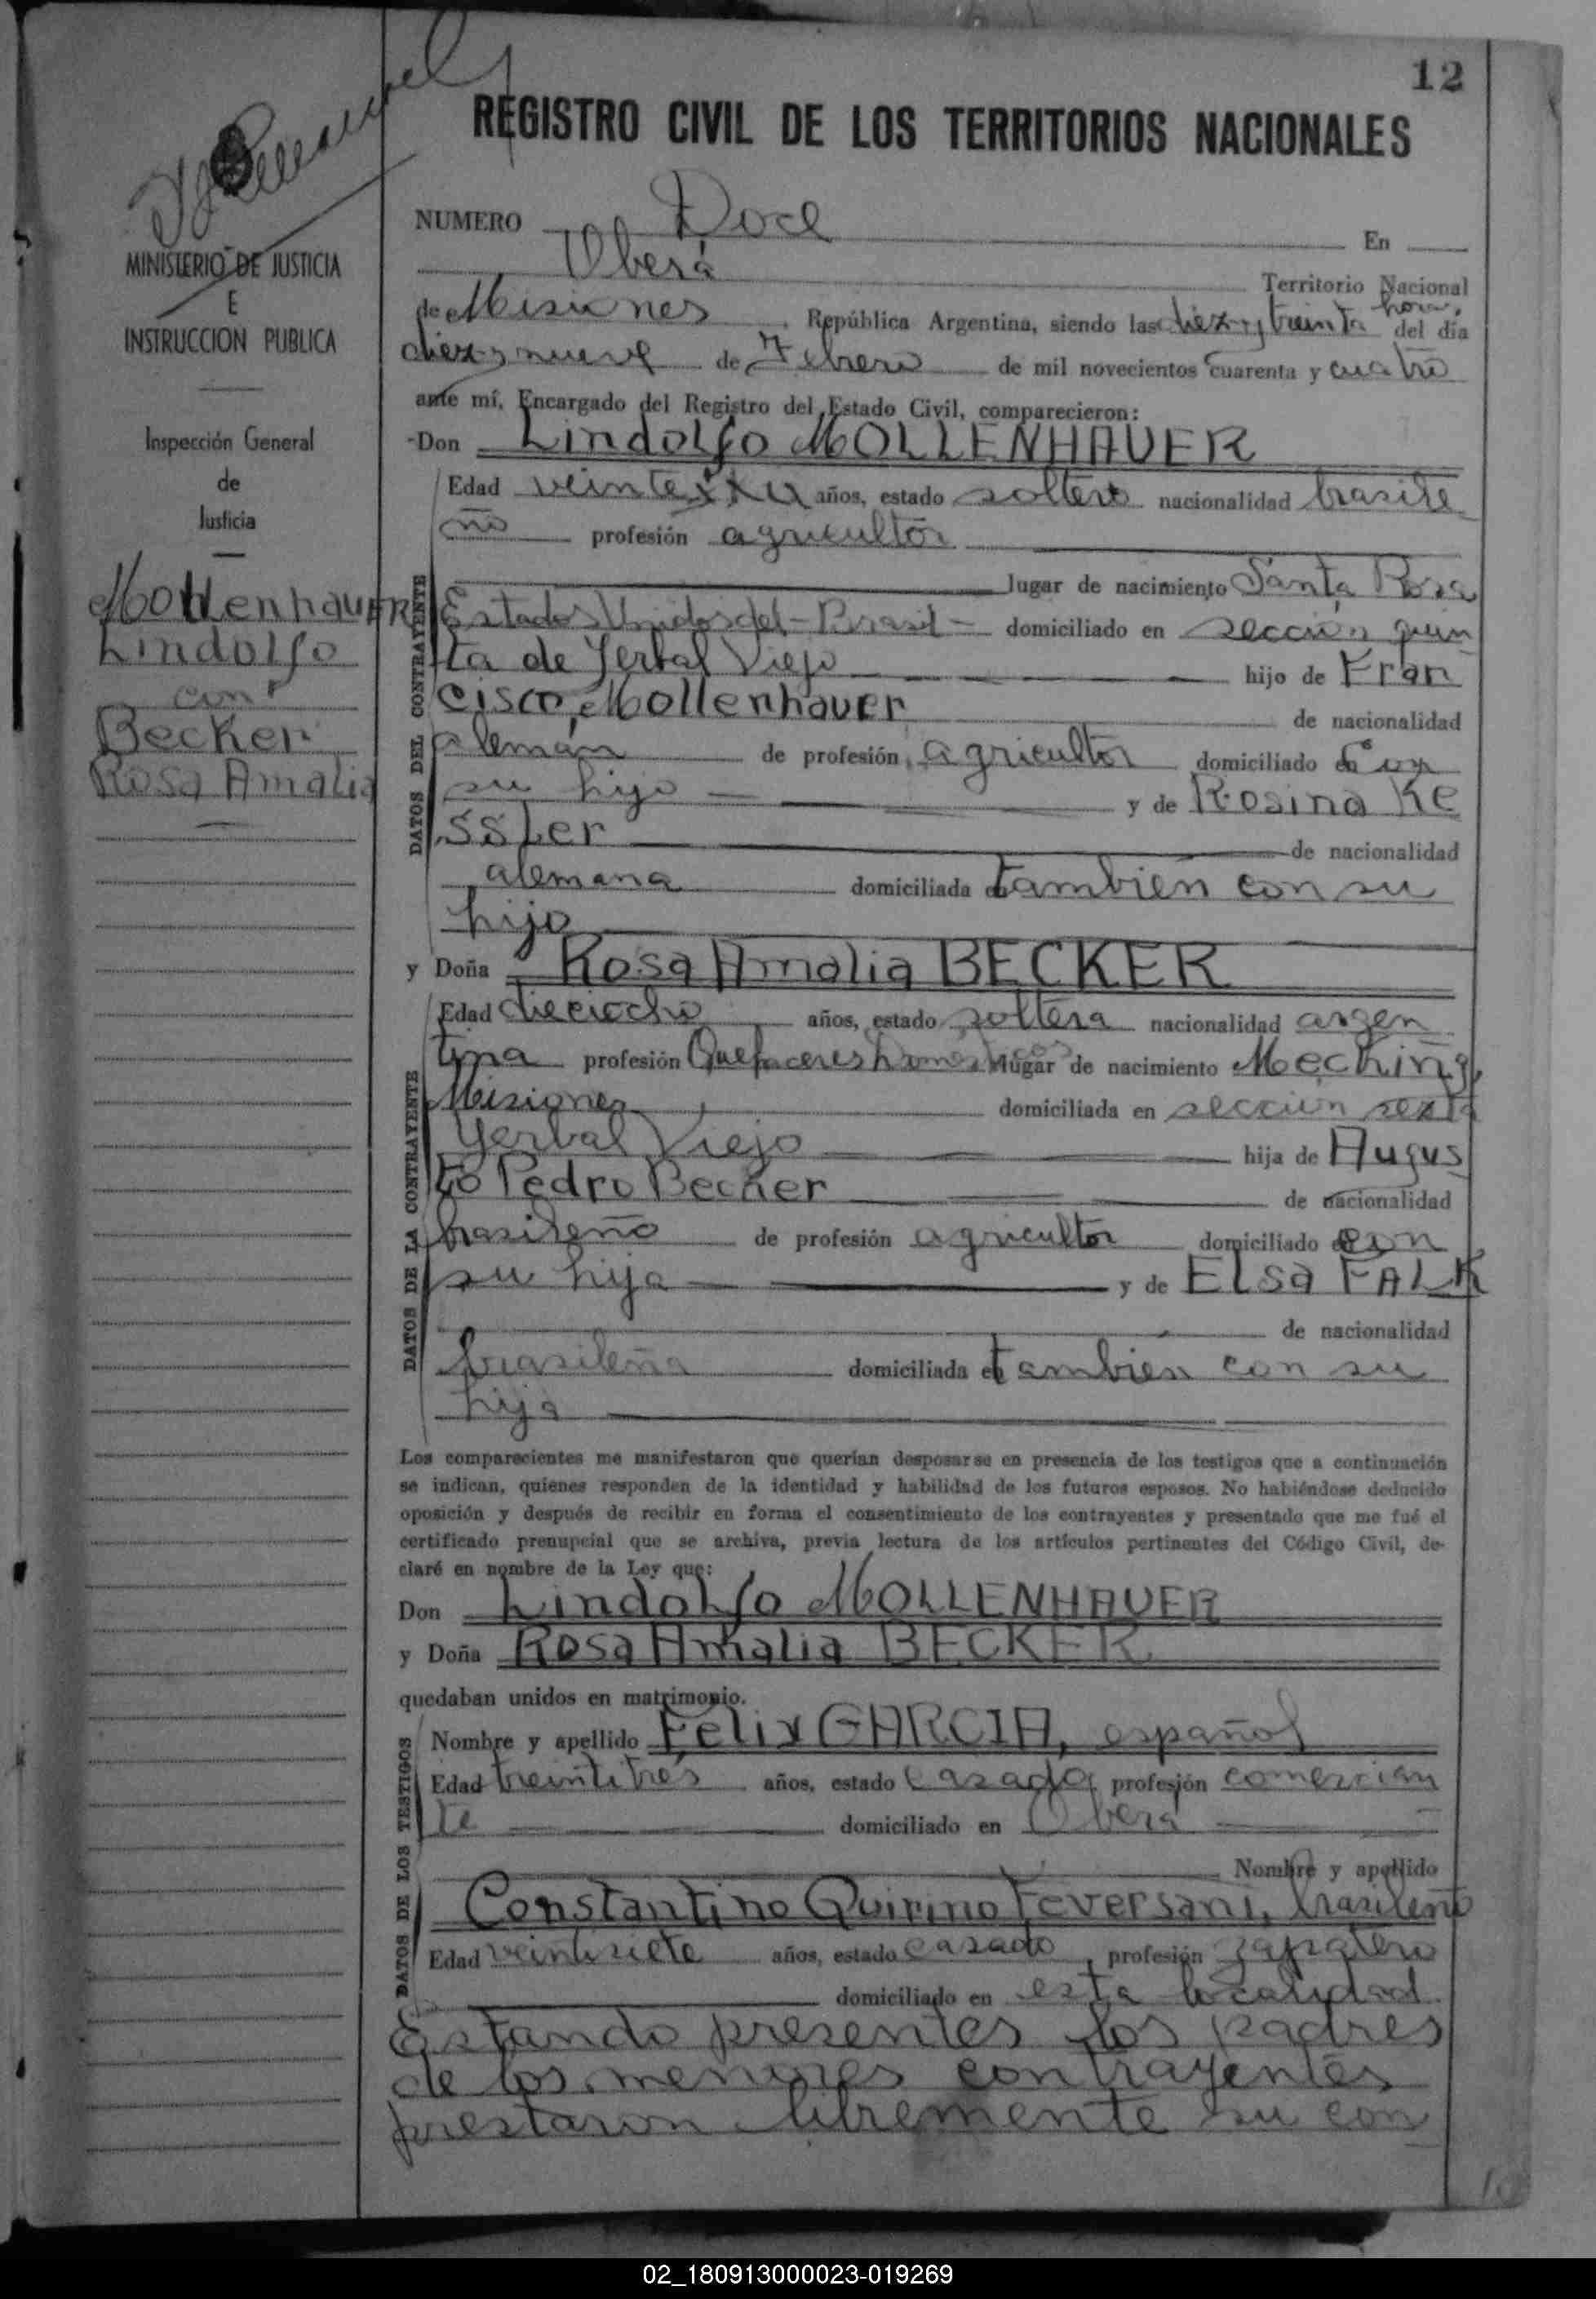 12
REGISTRO CIVIL DE LOS TERRITORIOS NACIONALES
MINISTERIO DE JUSTICIA
E
INSTRUCCION PUBLICA
Inspección General
de
Justicia
Mollenhauer
Lindolfo
con
Becker
Rosa Amalia
NUMERO Doce En
Oberá Territorio Nacional
de Misiones República Argentina, siendo las diez y treinta horas, del día
diez y nueve de Febrero de mil novecientos cuarenta y cuatro
ante mí, Encargado del Registro del Estado Civil, comparecieron:
Don Lindolfo MOLLENHAUER
Edad veinte años, estado soltero nacionalidad brasile
ño profesión agricultor
lugar de nacimiento Santa Rosa
Estados Unidos del Brasil domiciliado en sección quin
ta de Yerbal Viejo hijo de Fran
cisco Mollenhauer de nacionalidad
alemán de profesión agricultor domiciliado con
su hijo y de Rosina Ke
ssler de nacionalidad
alemana domiciliada también con su
hijo
y Doña Rosa Amalia BECKER
Edad dieciocho años, estado soltera nacionalidad argen
tina profesión Quehaceres Domésticos lugar de nacimiento Mecking,
Misiones domiciliada en sección sexta
Yerbal Viejo hija de Augus
to Pedro Becker de nacionalidad
brasileño de profesión agricultor domiciliado con
su hija y de Elsa FALK
de nacionalidad
brasileña domiciliada en también con su
hija
Los comparecientes me manifestaron que querían desposarse en presencia de los testigos que a continuación
se indican, quienes responden de la identidad y habilidad de los futuros esposos. No habiéndose deducido
oposición y después de recibir en forma el consentimiento de los contrayentes y presentado que me fué el
certificado prenupcial que se archiva, previa lectura de los artículos pertinentes del Código Civil, de-
claré en nombre de la Ley que:
Don Lindolfo MOLLENHAUER
y Doña Rosa Amalia BECKER
quedaban unidos en matrimonio.
Nombre y apellido Felix GARCIA, español
Edad treintitrés años, estado casado profesión comercian
te domiciliado en Oberá
Nombre y apellido
Constantino Quirino Feversani, brasileño
Edad veintisiete años, estado casado, profesión zapatero
domiciliado en esta localidad.
Estando presentes los padres
de los menores contrayentes
prestaron libremente su con
DATOS DEL CONTRAYENTE
DATOS DE LA CONTRAYENTE
DATOS DE LOS TESTIGOS
02_180913000023-019269